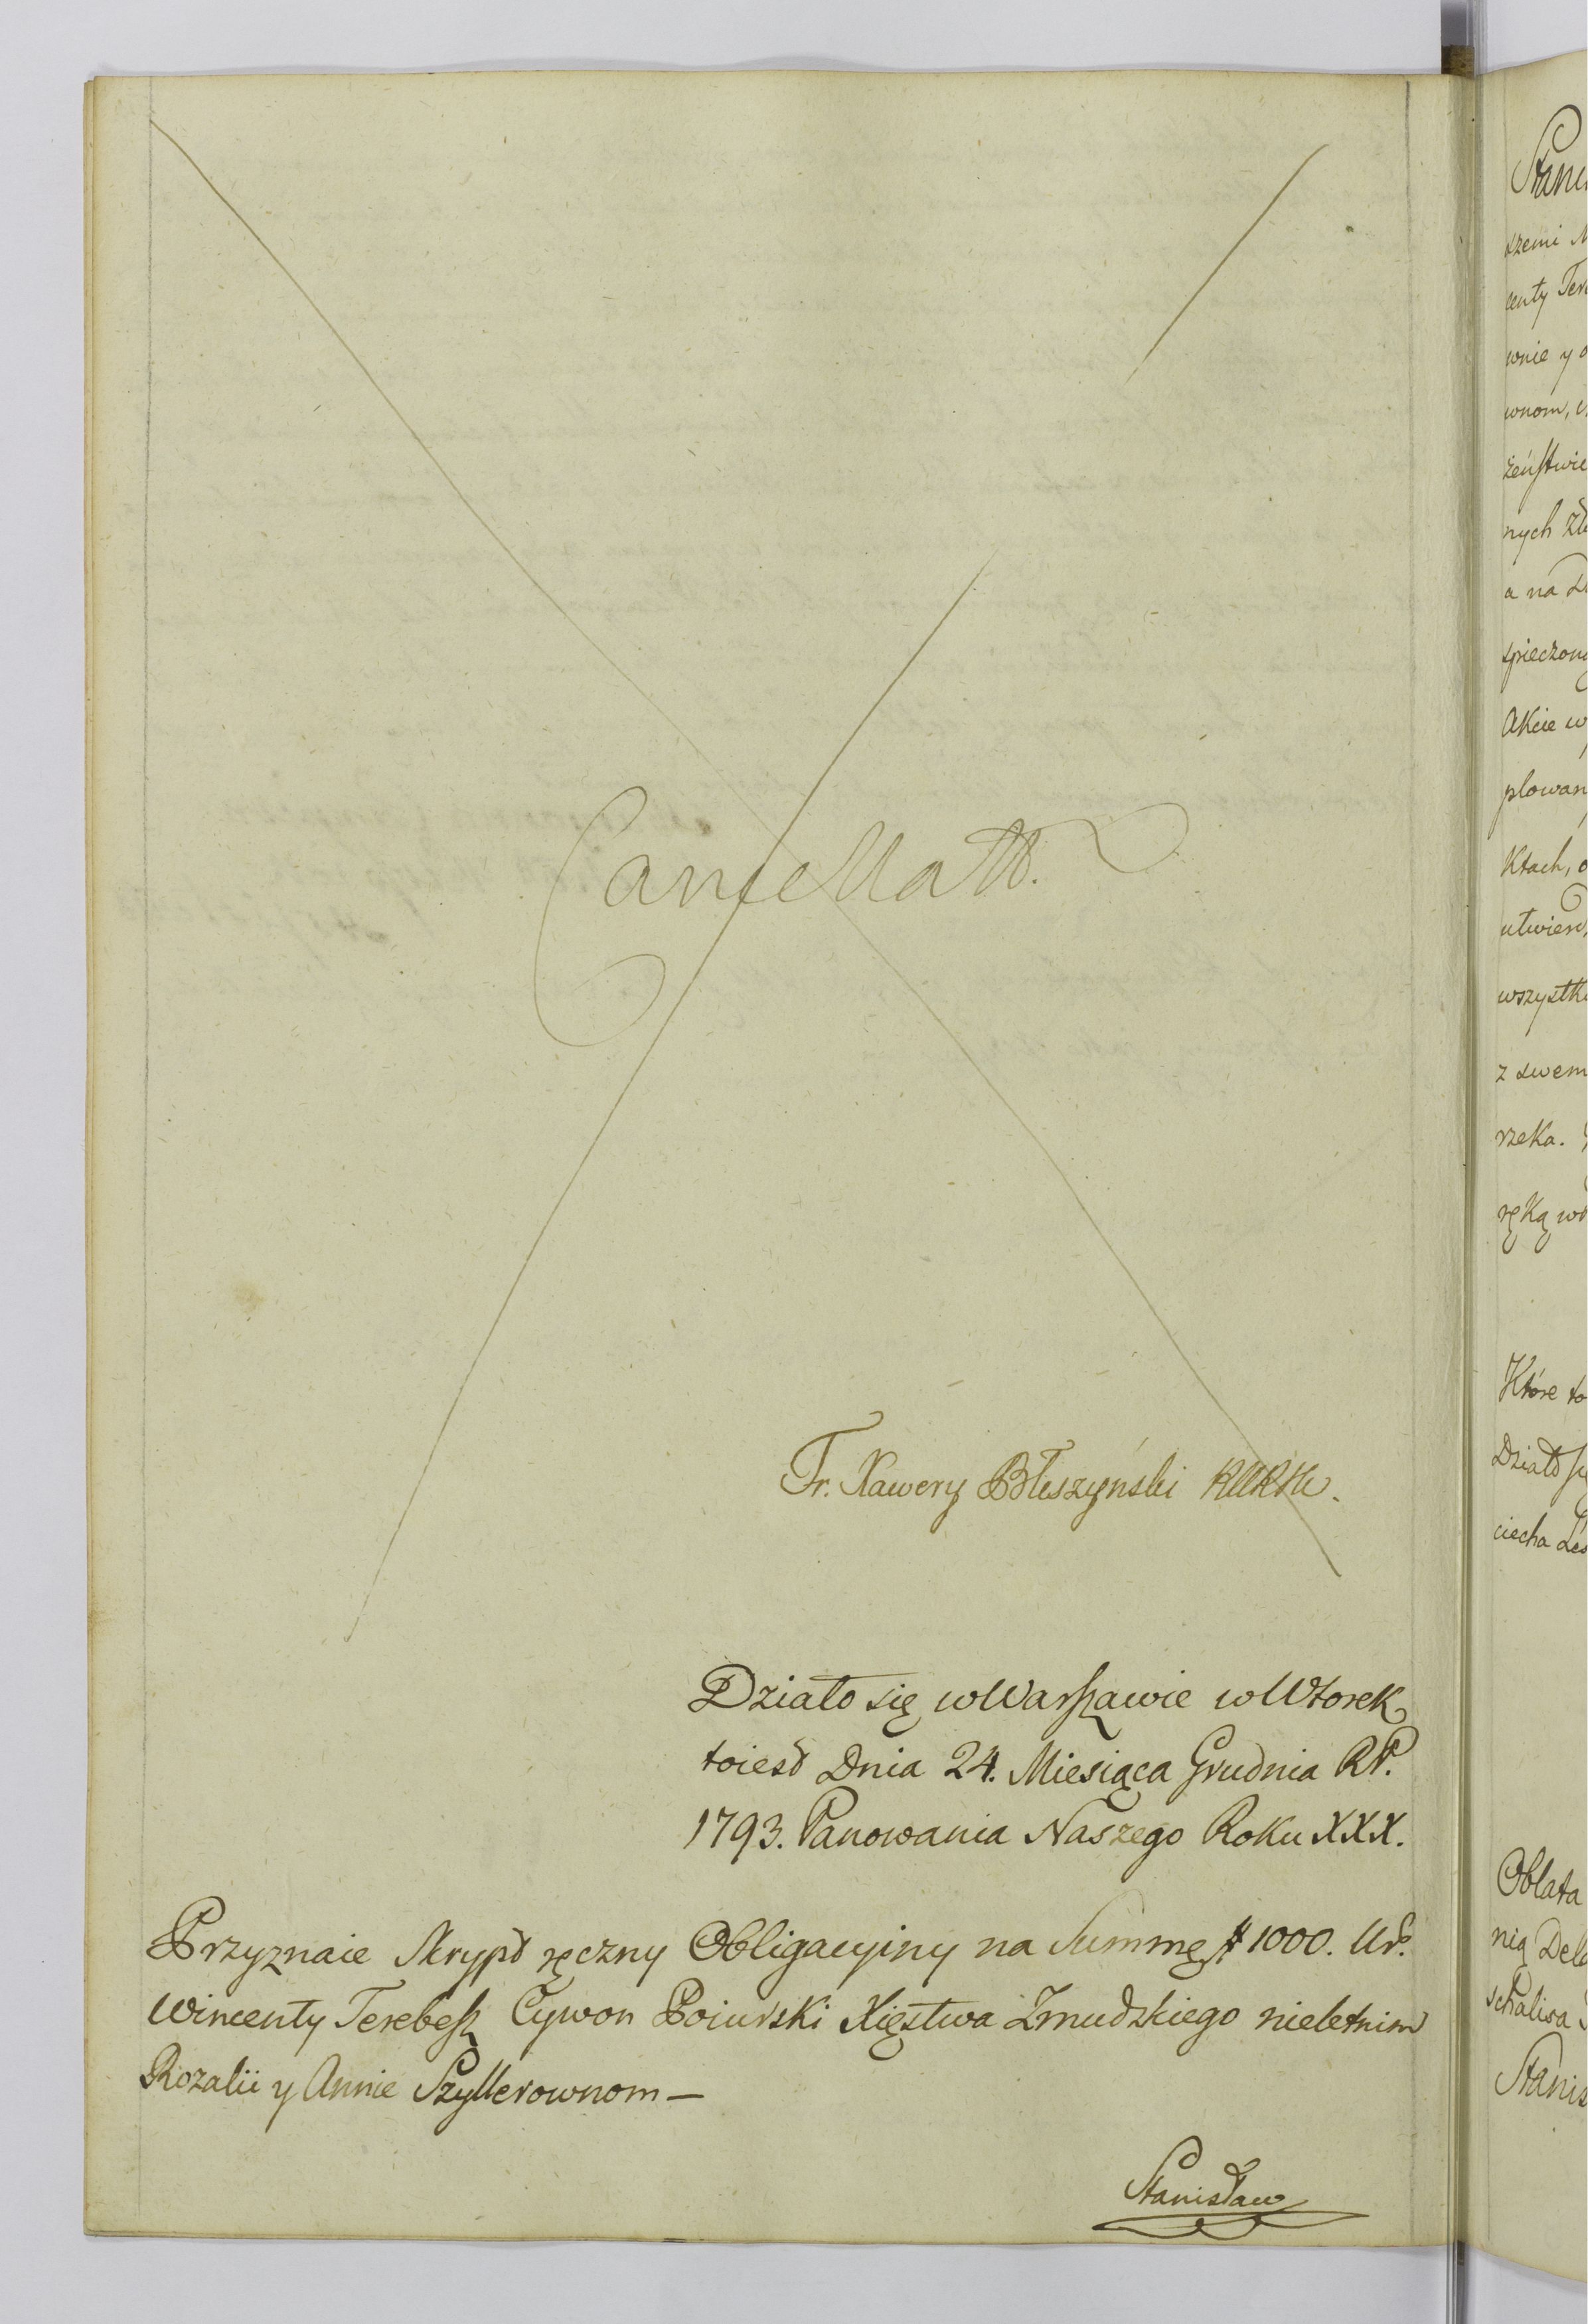 Cancellatt.
Fr. Xawery Błeszyński
Działo się w Warszawie w Wtorek
toiest Dnia 24. Miesiąca Grudnia RP.
1793. Panowania Naszego Roku XXX.
Przyznaie Skrypt ręczny Obligacyiny na Summę # 1000. Ur.
Wincenty Terebesz Cywon Poiurski Xięstwa Zmudzkiego nieletnim
Rozalii y Annie Szyllerownom —
Stanisław
Stani
szemi
centy Tere
wnie y
wnom,
żeństwie
nych
a na
spieczon
Akcie w
plowan
ktach,
utwierd
wszystk
z swem
rzeka.
ręką
Które to
Działo
ciecha
Oblata
nią Dele
Stanis